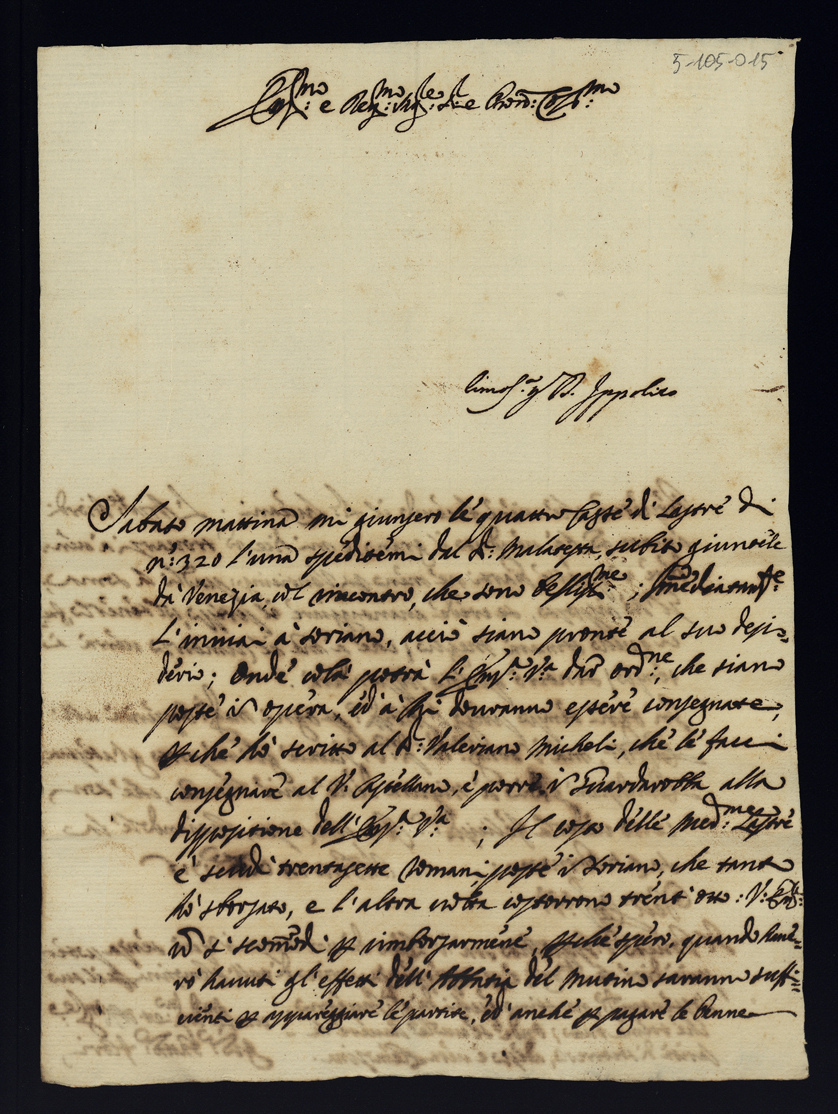 5-105-015
Em.mo e Rev.mo Sig.re S.r e Pron: Col.mo
limos.a p B. Ippolito
Sabato mattina mi giunsero le quattro Casse di Lastre di
n.o: 320 l'una speditemi dal S.r: Malatesta, subito giunteli
da Venezia, col rincontro, che sono bellissime; Immediatam.te
l'inviai à Soriano, acciò siano pronte al suo desi-
derio; Onde colà potrà l'Em.a V.ra dar ord.ne, che siano
poste in opera, ed à chi dovranno essere consegnate,
p che hò scritto al S.r: Valeriano Micheli, che le facci
consegnare al V. Castellano, e porre in Guardarobba alla
dispositione dell'Em.a V.ra; Il costo delle Med.me Lastre
è scudi trentasette romani poste in Soriano, che tanti
hò sborsato, e l'altra volta costorono trent'otto: V: Em:
non si scomodi p rimborsarmene, p che spero, quando haue-
rò havuti gl'effetti dell'Abbatia del Mutino saranno suffi-
cienti p appareggiare le partite, ed anche p pagare le Penne